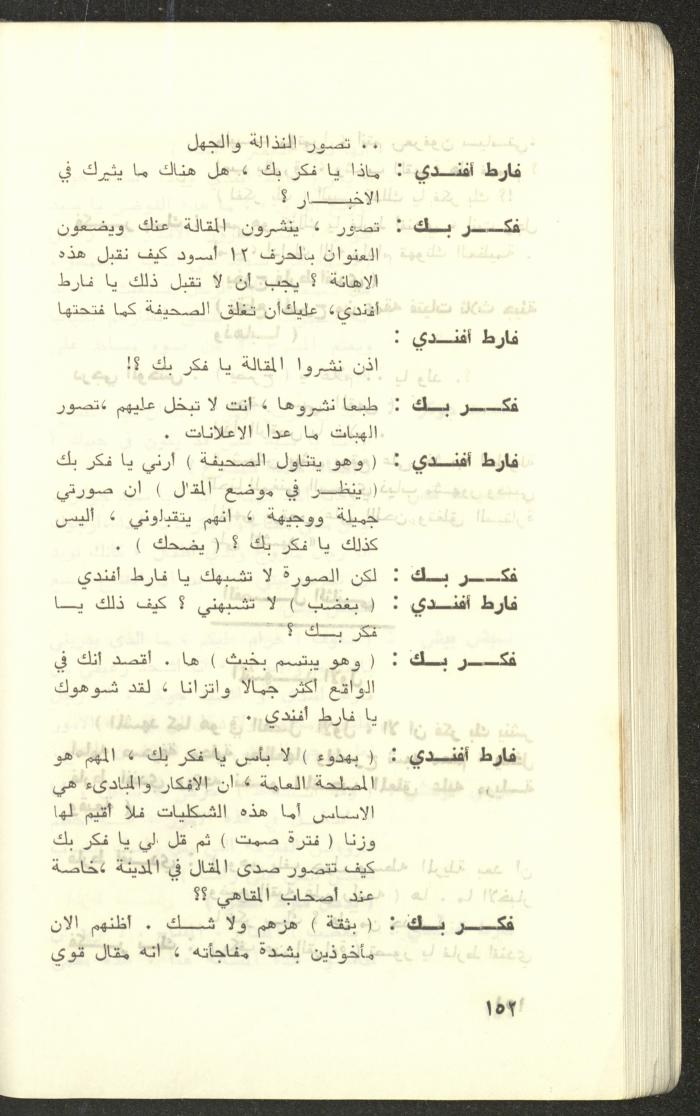 .. تصور النذالة والجهل
فارط أفنـــدي : ماذا يا فكر بك ، هل هناك ما يثيرك في
الاخبـــــار ؟
فكــــر بـــك : تصور ، ينشرون المقالة عنك ويضعون
العنوان بالحرف ١٢ أسود كيف نقبل هذه
الاهانة ؟ يجب أن لا تقبل ذلك يا فارط
أفندي، عليك أن تغلق الصحيفة كما فتحتها
فارط أفنـــدي :
اذن نشروا المقالة يا فكر بك ؟!
فكــــر بـــك : طبعا نشروها ، انت لا تبخل عليهم ،تصور
الهبات ما عدا الاعلانات .
فارط أفنـــدي : ( وهو يتناول الصحيفة ) أرني يا فكر بك
( ينظـــر في موضع المقال ) ان صورتي
جميلة ووجيهة ، انهم يتقبلوني ، اليس
كذلك يا فكر بك ؟ ( يضحك ) .
فكــــر بـــك : لكن الصورة لا تشبهك يا فارط أفندي
فارط أفنـــدي : ( بغضب ) لا تشبهني ؟ كيف ذلك يـــا
فكر بـــك ؟
فكــــر بـــك : ( وهو يبتسم بخبث ) ها . أقصد أنك في
الواقع أكثر جمالا واتزانا ، لقد شوهوك
يا فارط أفندي .
فارط أفنـــدي : ( بهدوء ) لا بأس يا فكر بك ، المهم هو
المصلحة العامة ، ان الافكار والمبادىء هي
الاساس أما هذه الشكليات فلا أقيم لها
وزنا ( فترة صمت ) ثم قل لي يا فكر بك
كيف تتصور صدى المقال في المدينة ،خاصة
عند أصحاب المقاهي ؟؟
فكــــر بـــك : ( بثقة ) هزهم ولا شـــك . أظنهم الان
مأخوذين بشدة مفاجأته ، انه مقال قوي
١٥٢